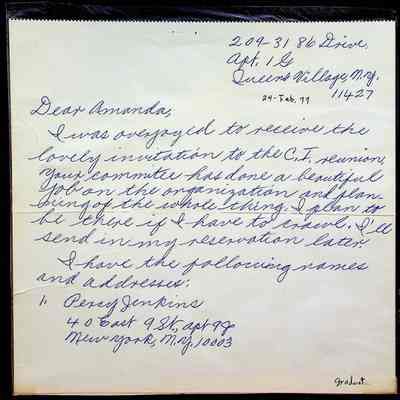 209-31 86 Drive,
Apt. 1G
Queens Village, N.Y.
11427
24-Feb, 99
Dear Amanda,
I was overjoyed to receive the
lovely invitation to the C.I. reunion,
your commitee has done a beautiful
job on the organization and plan-
ning of the whole thing. I plan to
be there if I have to crawl. I'll
send in my reservation later.
I have the following names
and addresses:
1. Percy Jenkins
40 East 9 St., apt 9J
New York, N.Y. 10003